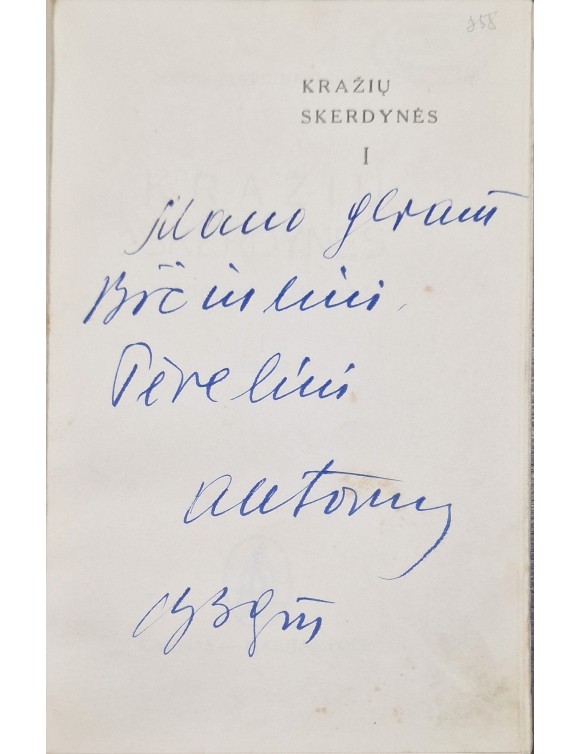 358
KRAŽIŲ
SKERDYNĖS
I
Mano geram
Bičiuliui
Tėveliui
autorius